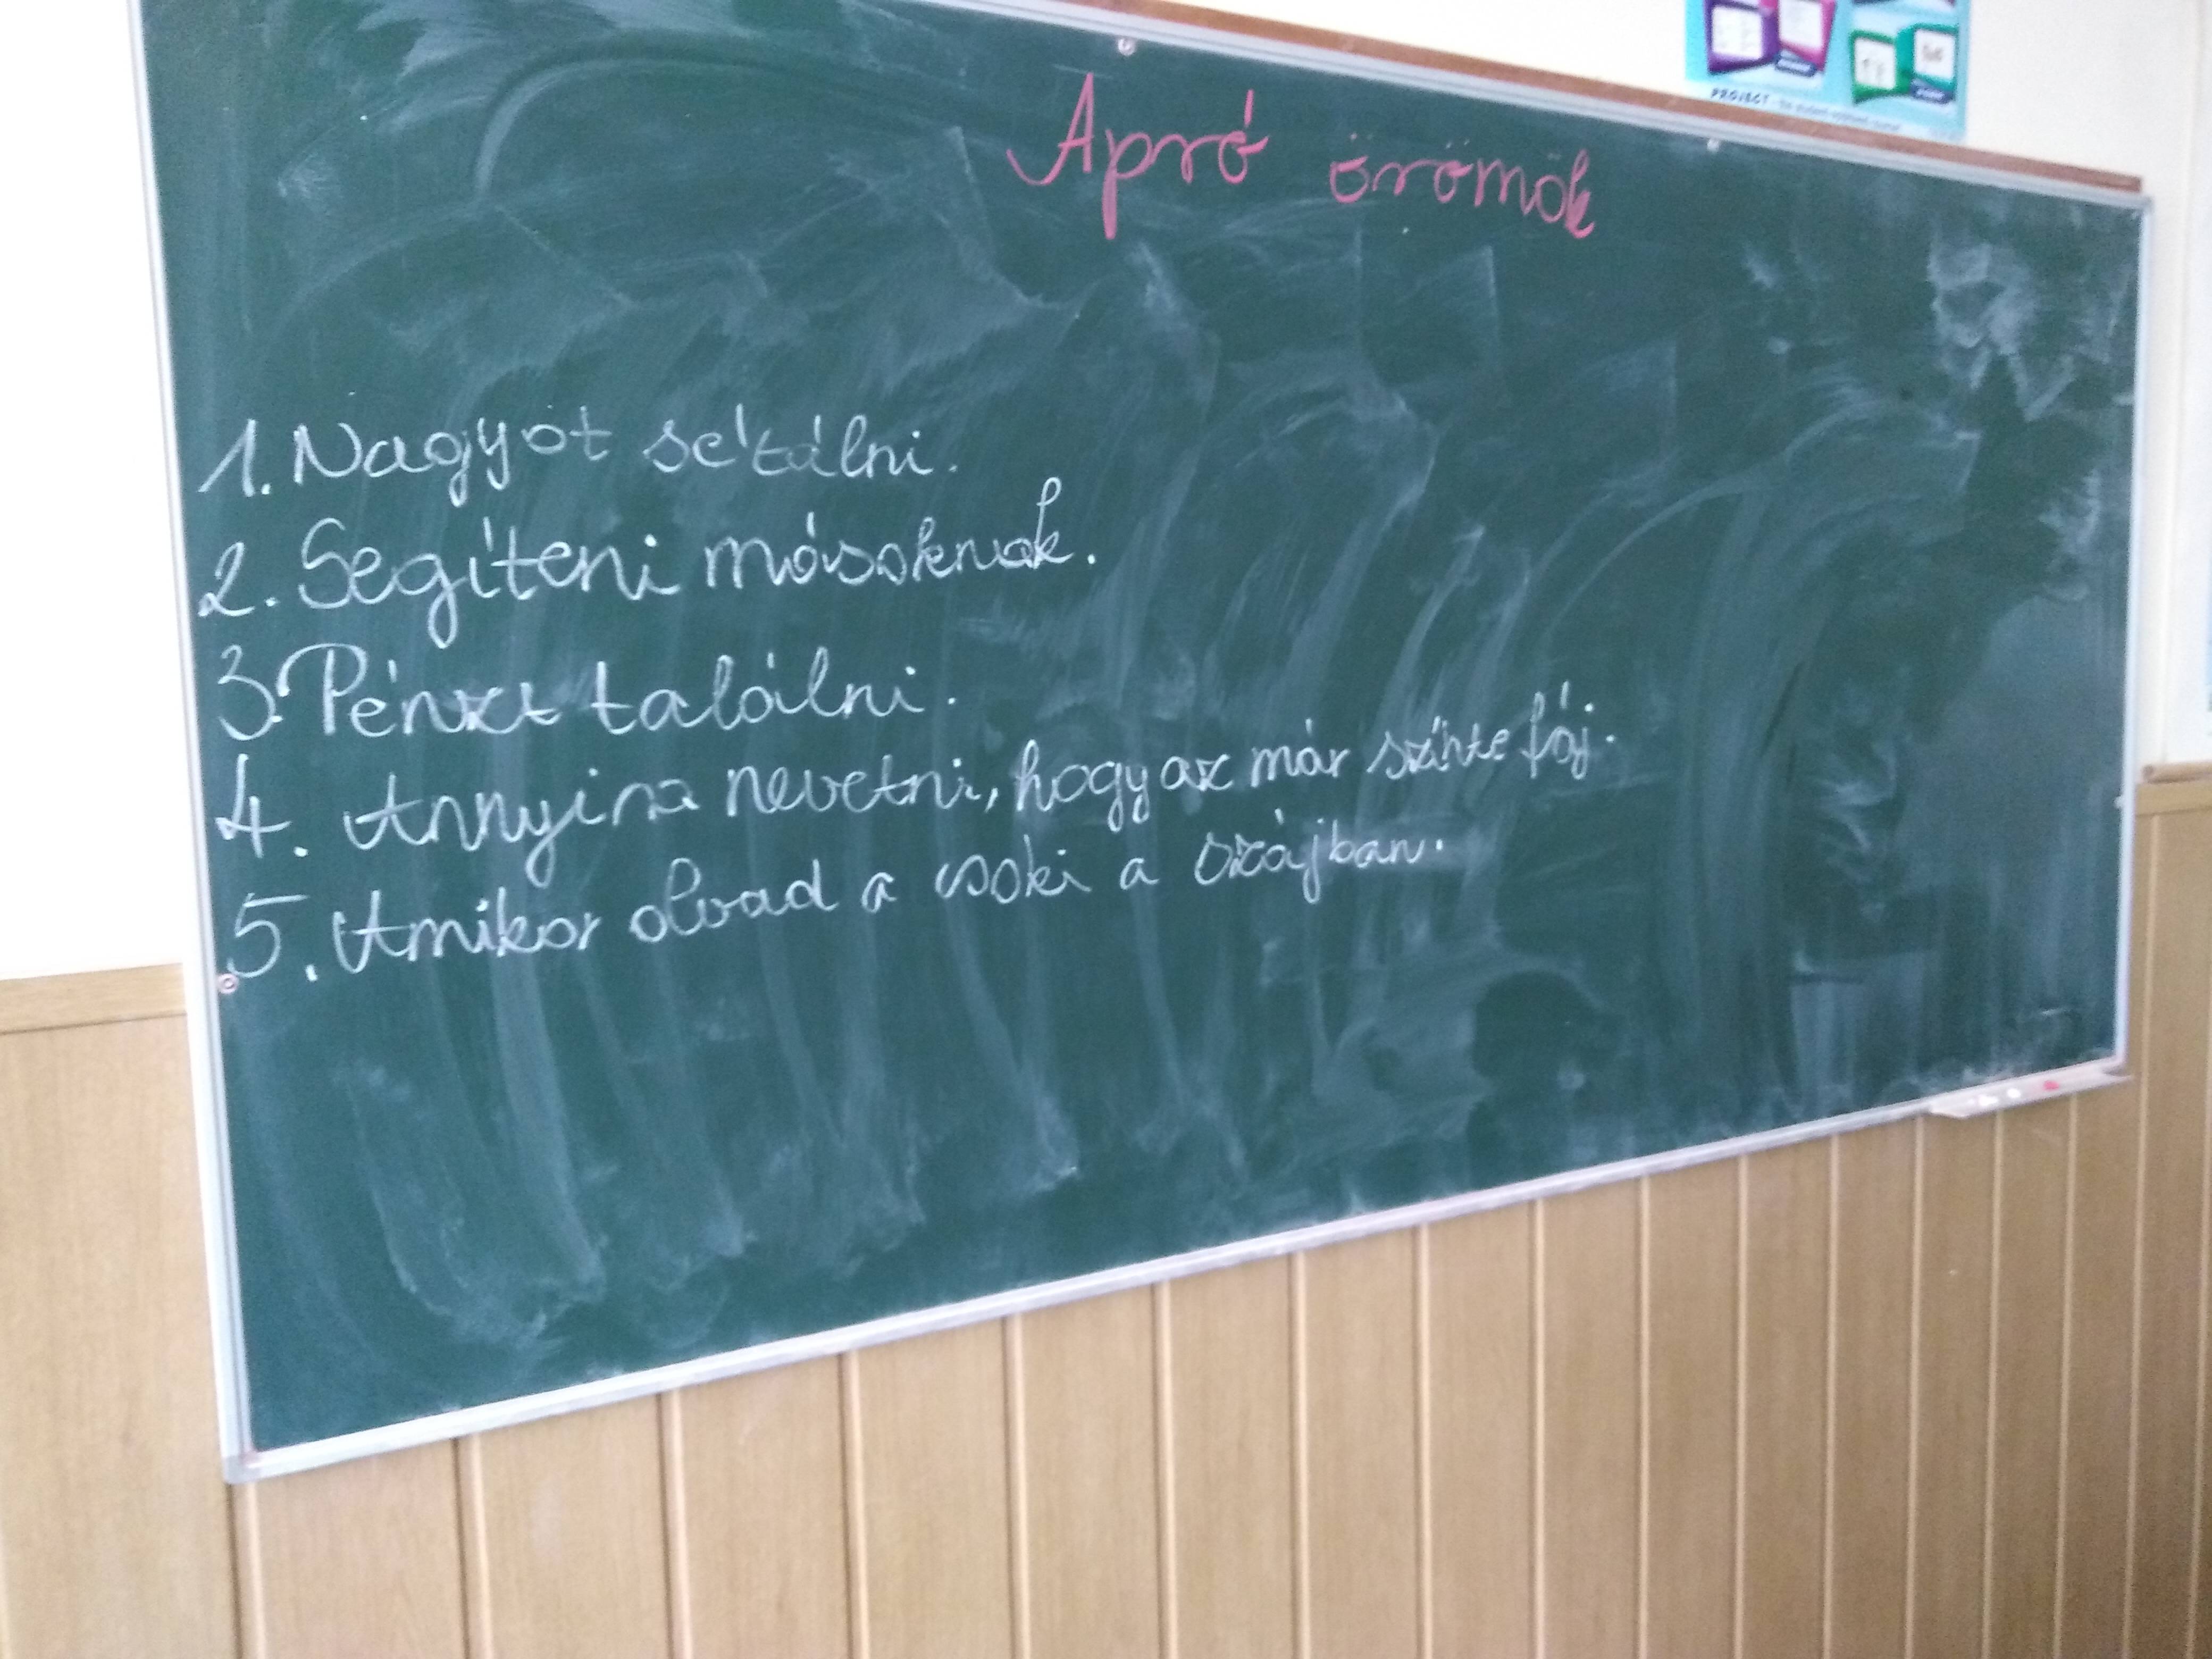 PROJECT
Apró örömök
1. Nagyot sétálni.
2. Segíteni másoknak.
3. Pénzt találni.
4. Annyira nevetni, hogy az már szinte fáj.
5. Amikor olvad a csoki a szájban.